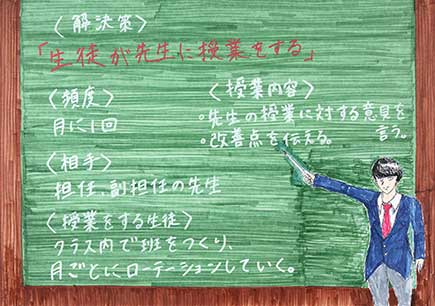 〈解決策〉
「生徒が先生に授業をする」
〈頻度〉
月に1回
〈相手〉
担任、副担任の先生
〈授業をする生徒〉
クラス内で班をつくり、
月ごとにローテーションしていく。
〈授業内容〉
・先生の授業に対する意見を
言う。
・改善点を伝える。